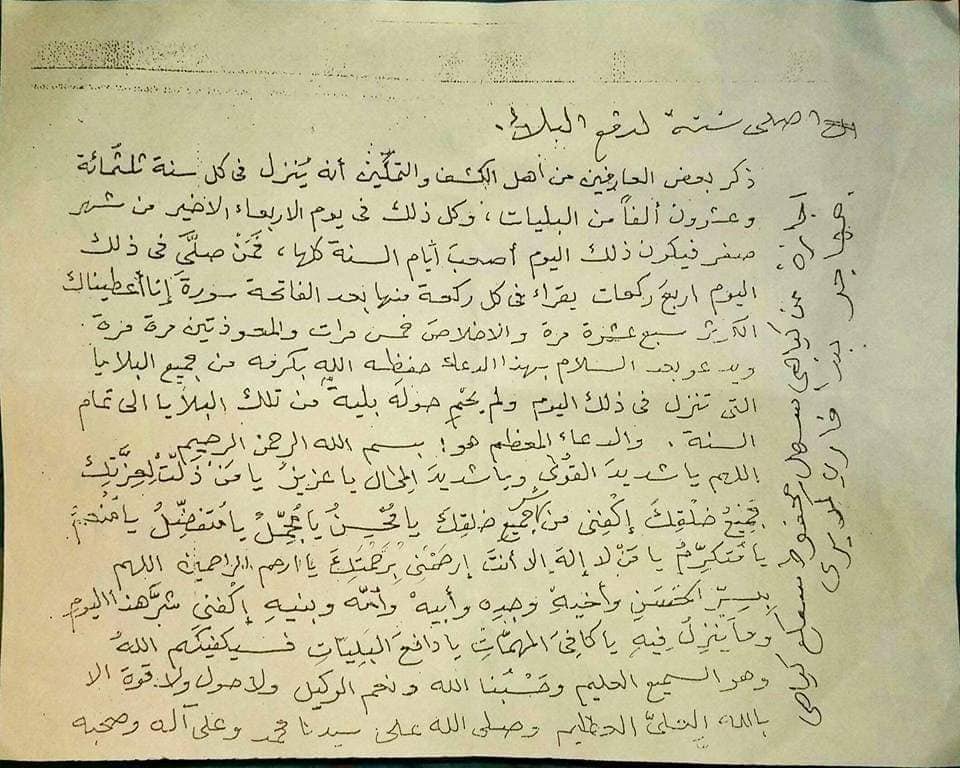 اصلى سنة لدفع البلاء.
ذكر بعض العارفين من أهل الكشف والتمكين أنه يُنزل فى كل سنة ثلثمائة
وعشرون ألفاً من البليات، وكل ذلك فى يوم الاربعاء الاخير من شهر
صفر فيكون ذلك اليوم أصعبَ أيام السنة كلها، فمَنْ صلَّى فى ذلك
اليوم اربع ركعات يقراء فى كل ركعة منها بعد الفاتحة سورة إنا أعطيناك
الكوثر سبع عشرة مرة والاخلاص خمس مرات والمعوذتين مرة مرة
ويدعو بعد السلام بهذا الدعاء حفظه الله بكرمه من جميع البلايا
التى تنزل فى ذلك اليوم ولم يحم حوله بلية من تلك البلايا الى تمام
السنة. والدعاء المعظم هو: بسم الله الرحمن الرحيم
اللهم يا شديدَ القُوٰى ويا شديدَ المِحَال يا عزيزُ يا مَنْ ذَلَّتْ لِعِزَّتِكَ
جَمِيْعُ خَلْقِكَ إكْفِنى من جَمِيعِ خلقِك يا مُحْسِنُ يا مُجَمِّلُ يا مُتَفَضِّلُ يا مُنْعِمُ
يا مُتَكَرِّمُ يا مَنْ لا إلهَ إلا أنتَ إرحَمْنى بِرَحْمَتِكَ يا ارحم الراحمين اللهم
بِسِرِّ الحَسَنِ وأخيهِ وجدِهِ وأبيهِ وأمِّه وبنيهِ إكْفِنى شَرَّ هذا اليوم
وما يَنْزِلُ فيهِ يا كافِىَ المهمَّاتِ يا دافِعَ البَلِيّاتِ فَسيَكفِيْكَهم اللهُ
وهو السميع العليم وحَسْبُنا الله ونعم الوكيل ولا حول ولا قوة الا
بالله العلىِّ العظيم وصلى الله على سيدنا محمد وعلى آله وصحبه